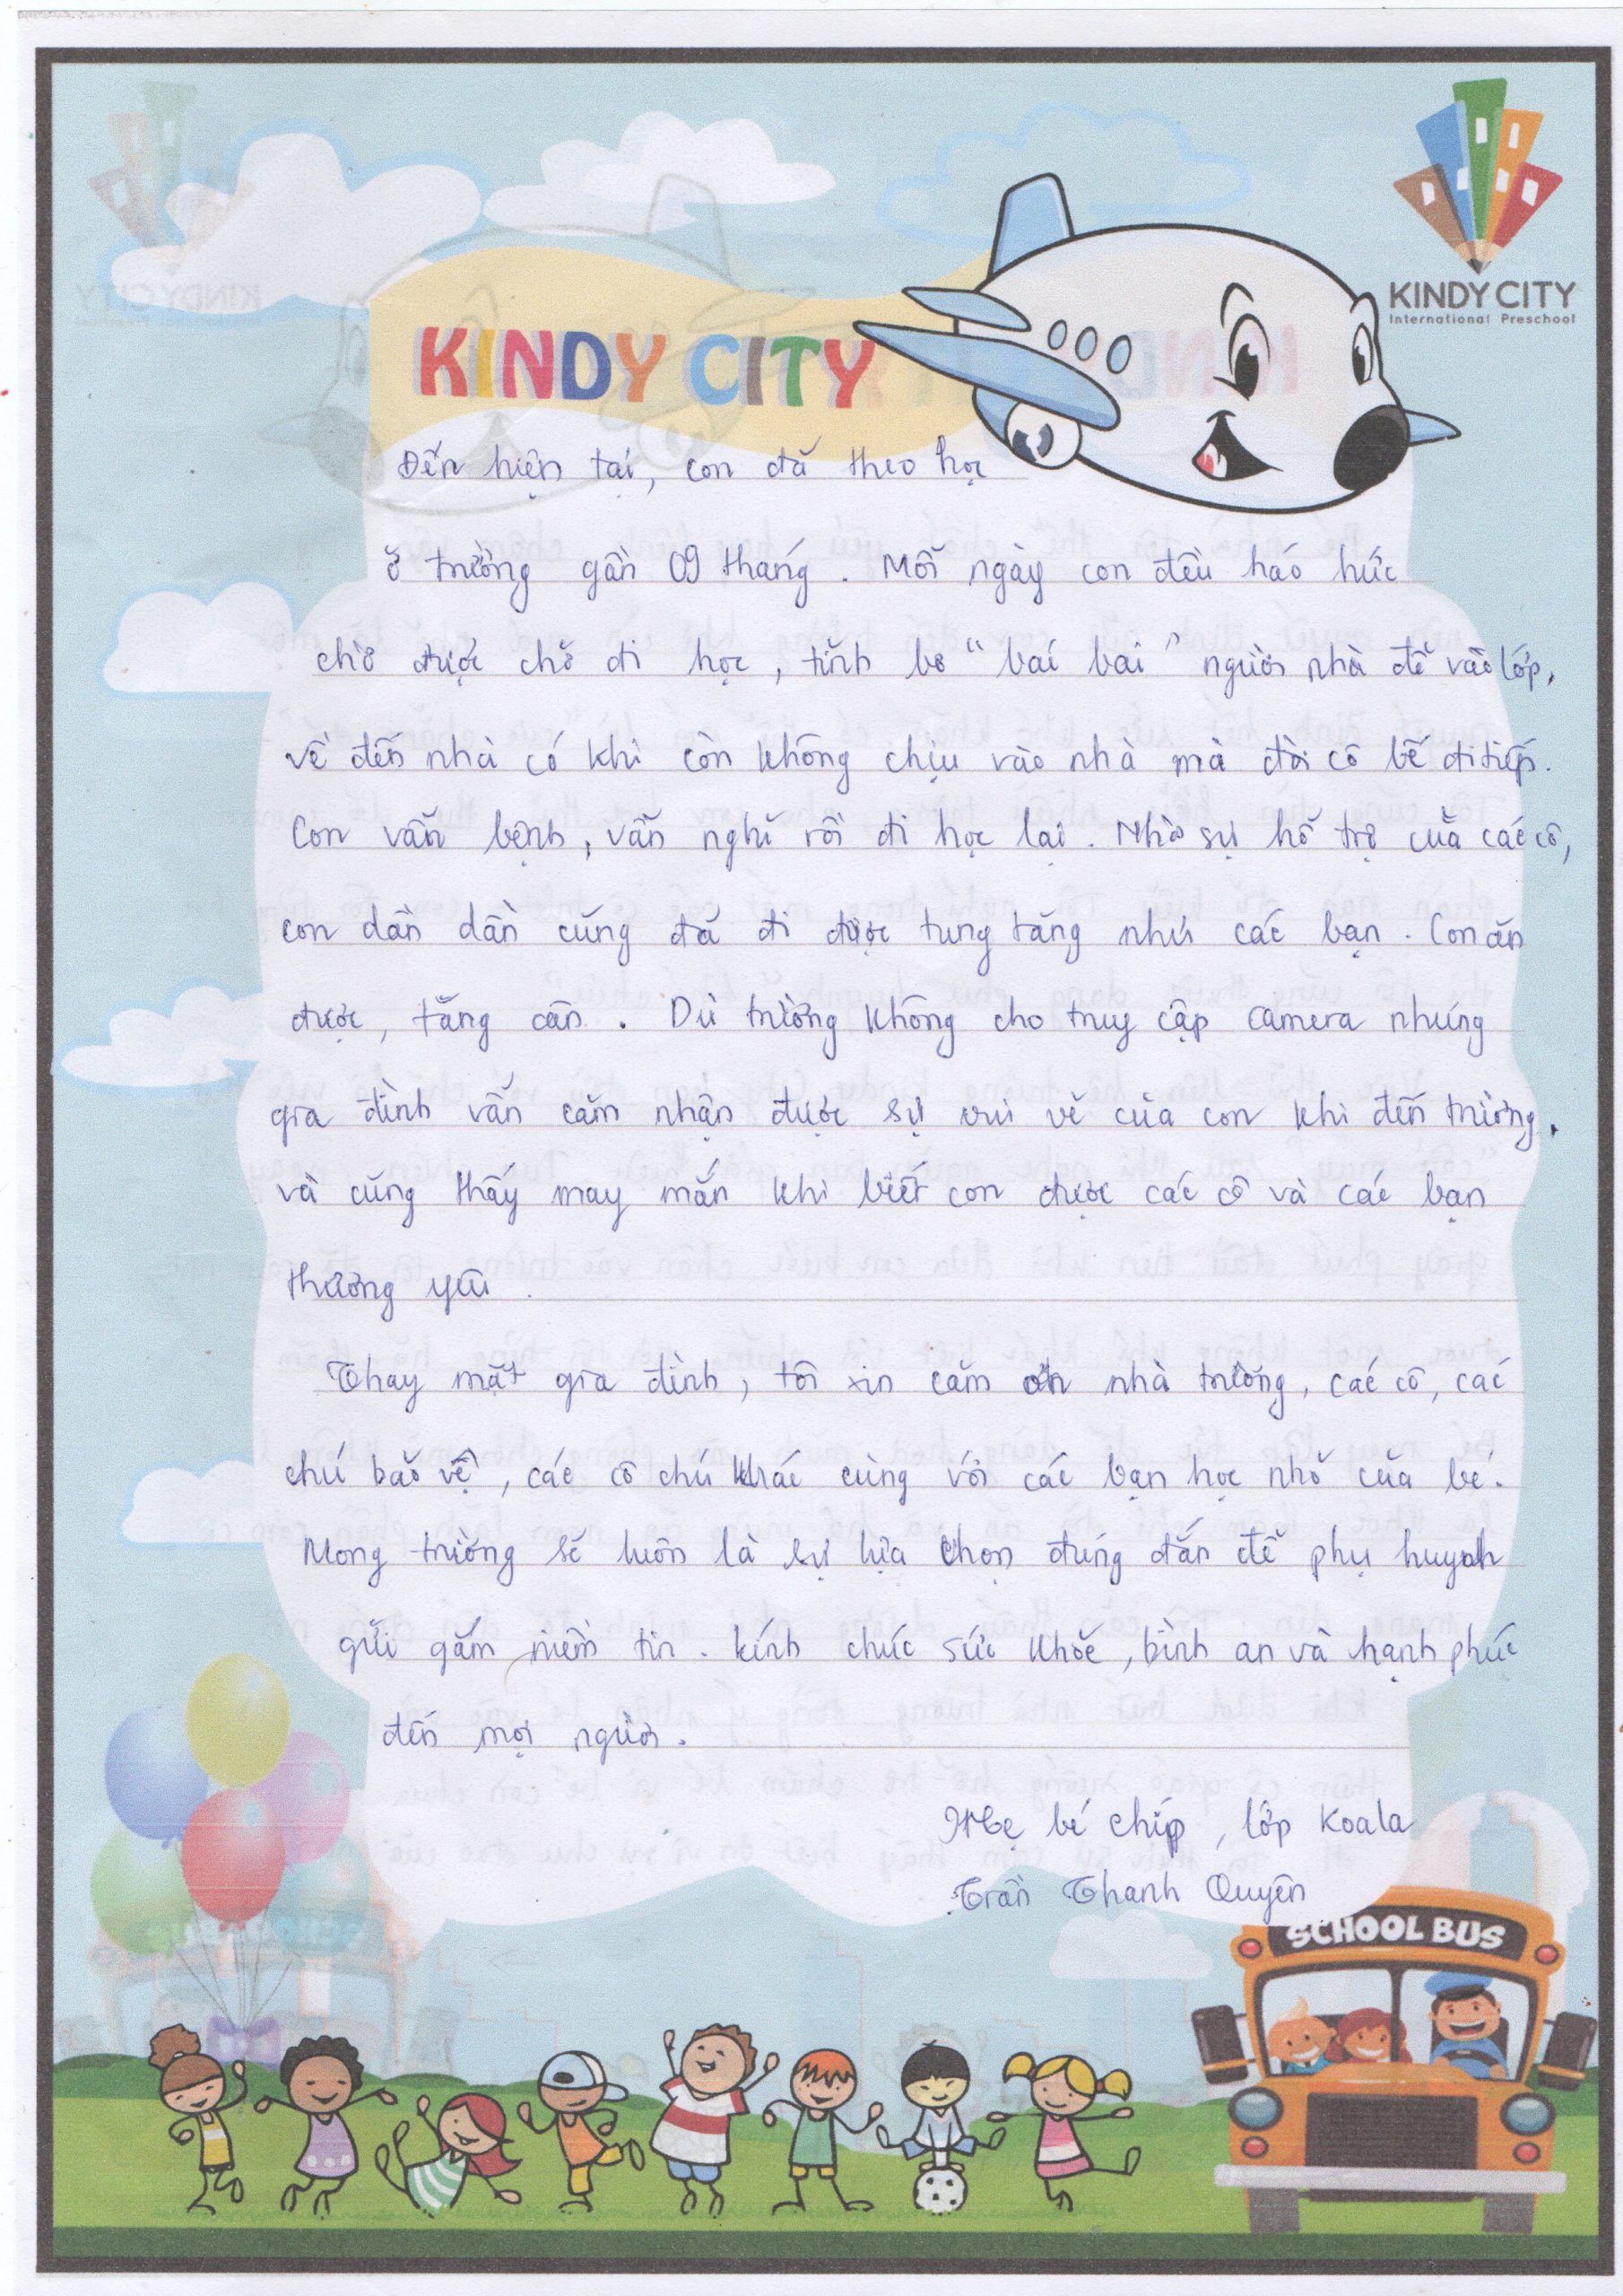 KINDY CITY
International Preschool
KINDY CITY
Đến hiện tại, con đã theo học
ở trường gần 09 tháng. Mỗi ngày con đều háo hức
chờ được chở đi học, tỉnh bơ "bai bai" người nhà để vào lớp,
về đến nhà có khi còn không chịu vào nhà mà đòi cô bế đi tiếp.
Con vẫn bệnh, vẫn nghỉ rồi đi học lại. Nhờ sự hỗ trợ của các cô,
con dần dần cũng đã đi được tung tăng như các bạn. Con ăn
được, tăng cân. Dù trường không cho truy cập camera nhưng
gia đình vẫn cảm nhận được sự vui vẻ của con khi đến trường,
và cũng thấy may mắn khi biết con được các cô và các bạn
thương yêu.
Thay mặt gia đình, tôi xin cảm ơn nhà trường, các cô, các
chú bảo vệ, các cô chú khác cùng với các bạn học nhỏ của bé.
Mong trường sẽ luôn là sự lựa chọn đúng đắn để phụ huynh
gửi gắm niềm tin. Kính chúc sức khỏe, bình an và hạnh phúc
đến mọi người.
Mẹ bé Chíp, lớp Koala
Trần Thanh Quyên
SCHOOL BUS